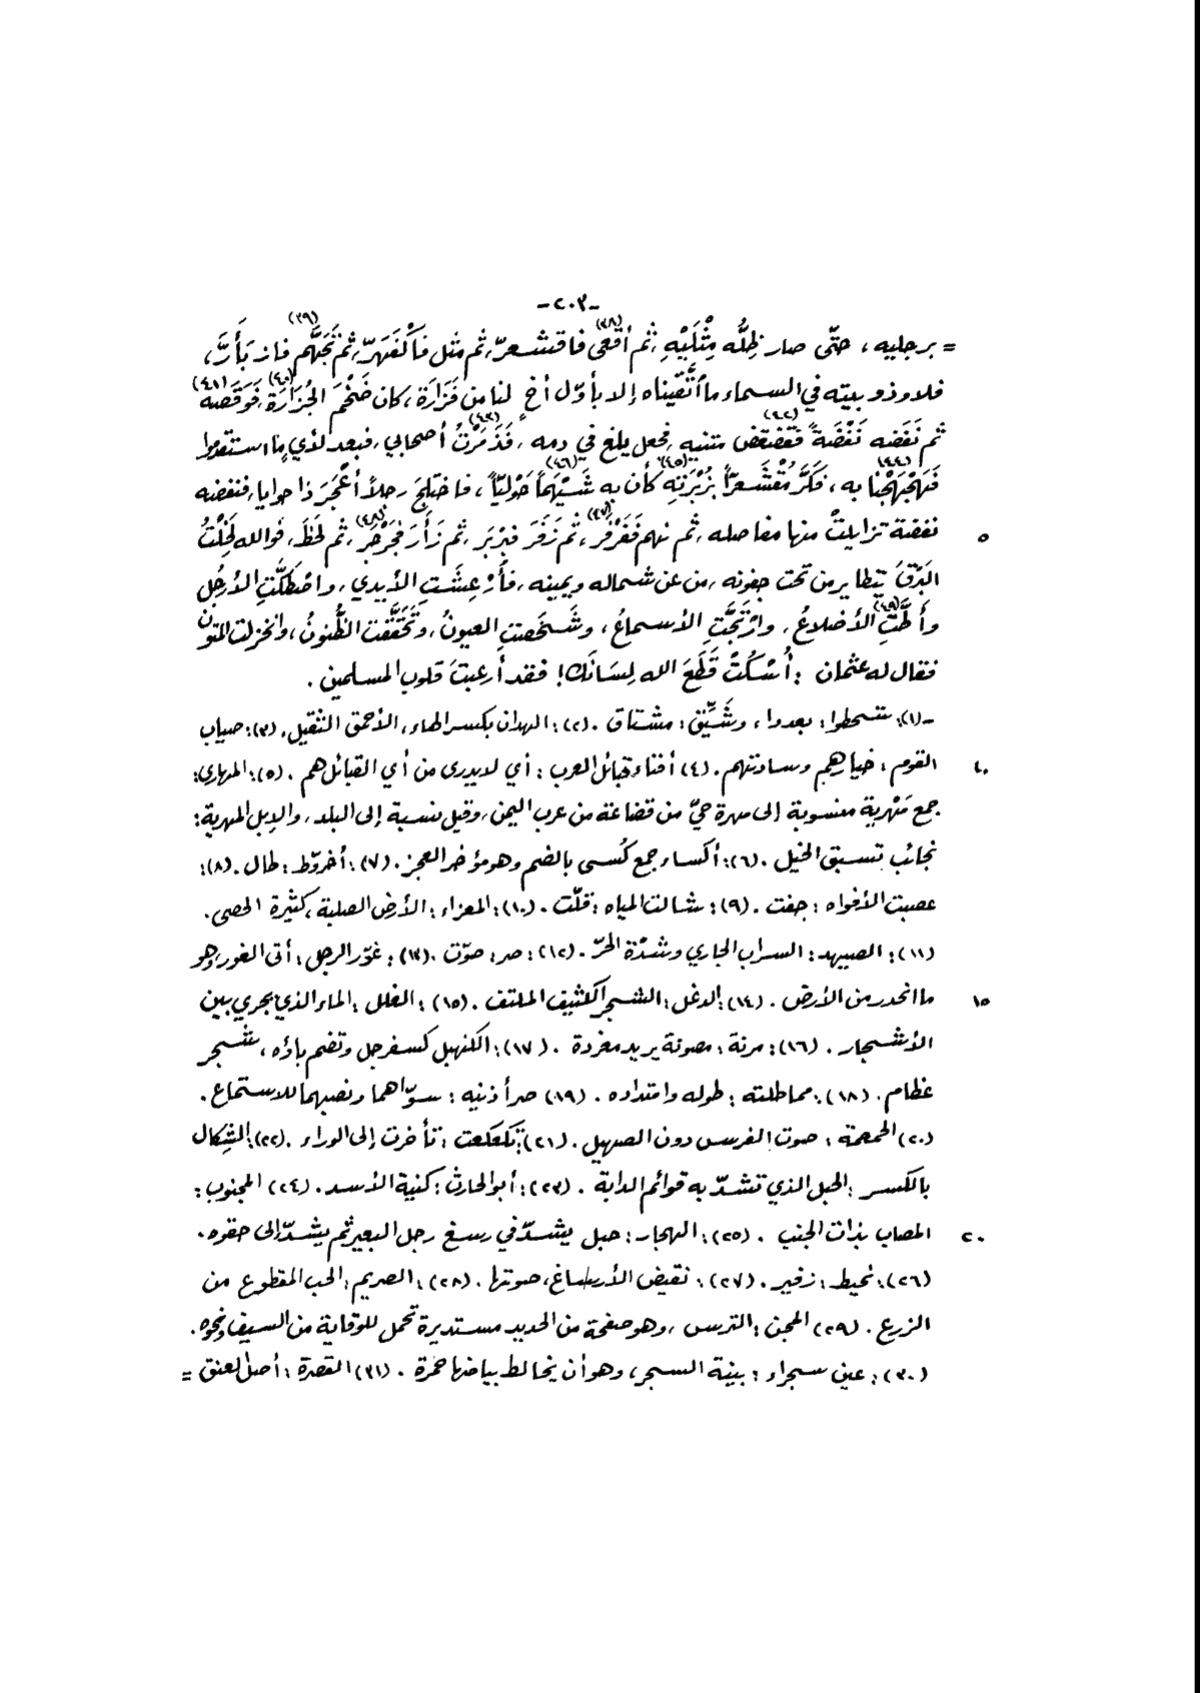 -٢٠٣-
= برجليه، حتّى صار ظِلُّه مِثْلَيْهِ، ثم أقعى(٣٨) فاقشعرّ، ثم مثل فاكْفَهَرّ، ثم تَجَهَّم(٣٩) فازبَأَرَّ،
فلا وذو بيته في السماء ما اتَّقيناه إلا بأوّل أخٍ لنا من فَزَارَة، كان ضَخْمَ الجُزَارَة(٤٠)، فَوَقَصَه(٤١)
ثم نَفَضه نَفْضَةً فقضقض(٤٢) متنيه، فجعل يلغ في دمه، فَذَمَرْتُ(٤٣) أصحابي، فبعد لأيٍ ما استقدموا
فَهَجْهَجْنا(٤٤) به، فكَرَّ مُقْشَعِرّاً بزُبْرَتِه(٤٥) كأن به شَيْهَماً(٤٦) حَوْليّاً، فاختلجَ رجلاً أعْجَرَ ذا حوايا، فنفضه
٥ نفضة تزايلتْ منها مفاصله، ثم نهم فَفَرْفَر(٤٧)، ثم زَفَرَ فبَرْبَر، ثم زَأَرَ فجَرْجَر(٤٨)، ثم لَحَظَ، فوالله لَخِلْتُ
البَرْقَ يتطاير من تحت جفونه، من عن شماله ويمينه، فأُرْعِشَتِ الأيدي، واصْطَكَّتِ الأرْجُل
وأَطَّتِ(٤٩) الأضلاعُ، وارْتَجَّتِ الأسماعُ، وشَخَصتِ العيونُ، وتَحَقَّقت الظُّنونُ، وانخزلت المتون
فقال له عثمان : أُسْكُتْ قَطَعَ الله لِسَانَك! فقد أرعبتَ قلوب المسلمين.
-(١): شحطوا: بعدوا، وشَيِّق: مشتاق. (٢): الهدان بكسر الهاء، الأحمق الثقيل. (٣): صياب
١٠ القوم: خيارهم وسادتهم. (٤) أفناء قبائل العرب: أي لا يدرى من أي القبائل هم. (٥): المهاري:
جمع مَهْرية منسوبة إلى مهرة حيّ من قضاعة من عرب اليمن، وقيل نسبة إلى البلد، والإبل المهرية:
نجائب تسبق الخيل. (٦): أكساء جمع كُسى بالضم وهو مؤخر العجز. (٧): أخروّط: طال. (٨):
عصبت الأفواه: جفت. (٩): شالت المياه: قلّت. (١٠): المعزاء: الأرض الصلبة، كثيرة الحصى.
(١١): الصيهد: السراب الجاري وشدّة الحرّ. (١٢): صر: صوّت. (١٣): غوّر الرجل: أتى الغور، وهو
١٥ ما انحدر من الأرض. (١٤): الدغل: الشجر الكثيف الملتف. (١٥): الغلل: الماء الذي يجري بين
الأشجار. (١٦): مرنة: مصوتة يريد مغردة. (١٧): الكنهبل كسفرجل وتضم باؤه، شجر
عظام. (١٨): مماطلته: طوله وامتداده. (١٩) صر أذنيه: سوّاهما ونصبهما للاستماع.
(٢٠) الحمحمة: صوت الفرس دون الصهيل. (٢١): تكعكعت: تأخرت إلى الوراء. (٢٢): الشِكال
بالكسر: الحبل الذي تشدّ به قوائم الدابة. (٢٣): أبو الحارث: كنية الأسد. (٢٤) المجنوب:
٢٠ المصاب بذات الجنب. (٢٥): الهجار: حبل يشدّ في رسغ رجل البعير ثم يشدّ إلى حقوه.
(٢٦): نحيط: زفير. (٢٧): نقيض الأرساغ، صوتها. (٢٨): الصريم: الحب المقطوع من
الزرع. (٢٩) المجن: الترس، وهو صفحة من الحديد مستديرة تحمل للوقاية من السيف ونحوه.
(٣٠): عين سجراء: بينة السجر، وهو أن يخالط بياضها حمرة. (٣١) القصرة: أصل العنق =